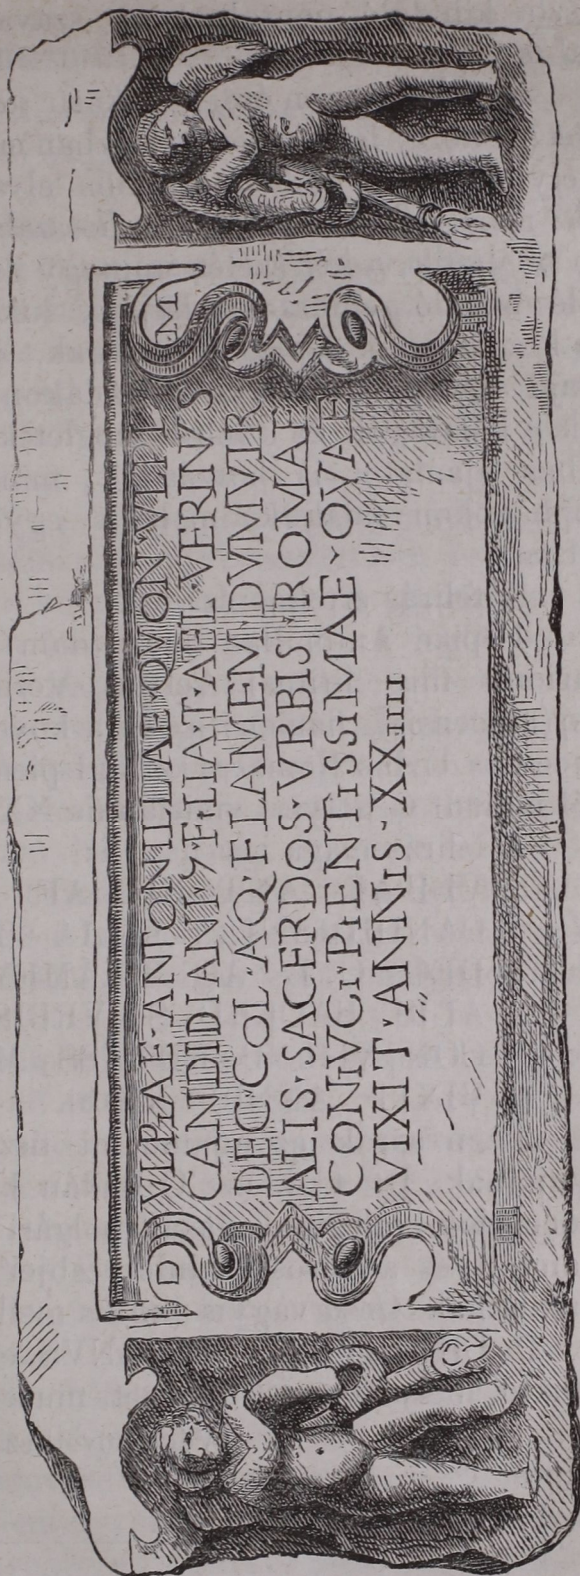 D M
VLPiAE·ANTONILLAE·QVON·VLPI
CANDIDIANI·7·FiL·AT·AEL·VERINVS
DEC·COL·AQ·FLAMEN·DVMVIR
ALIS·SACERDOS·VRBIS·ROMAE
CONiVGi·PiENTiSSiMAE·QVAE
VIXIT·ANNiS·XXiiii